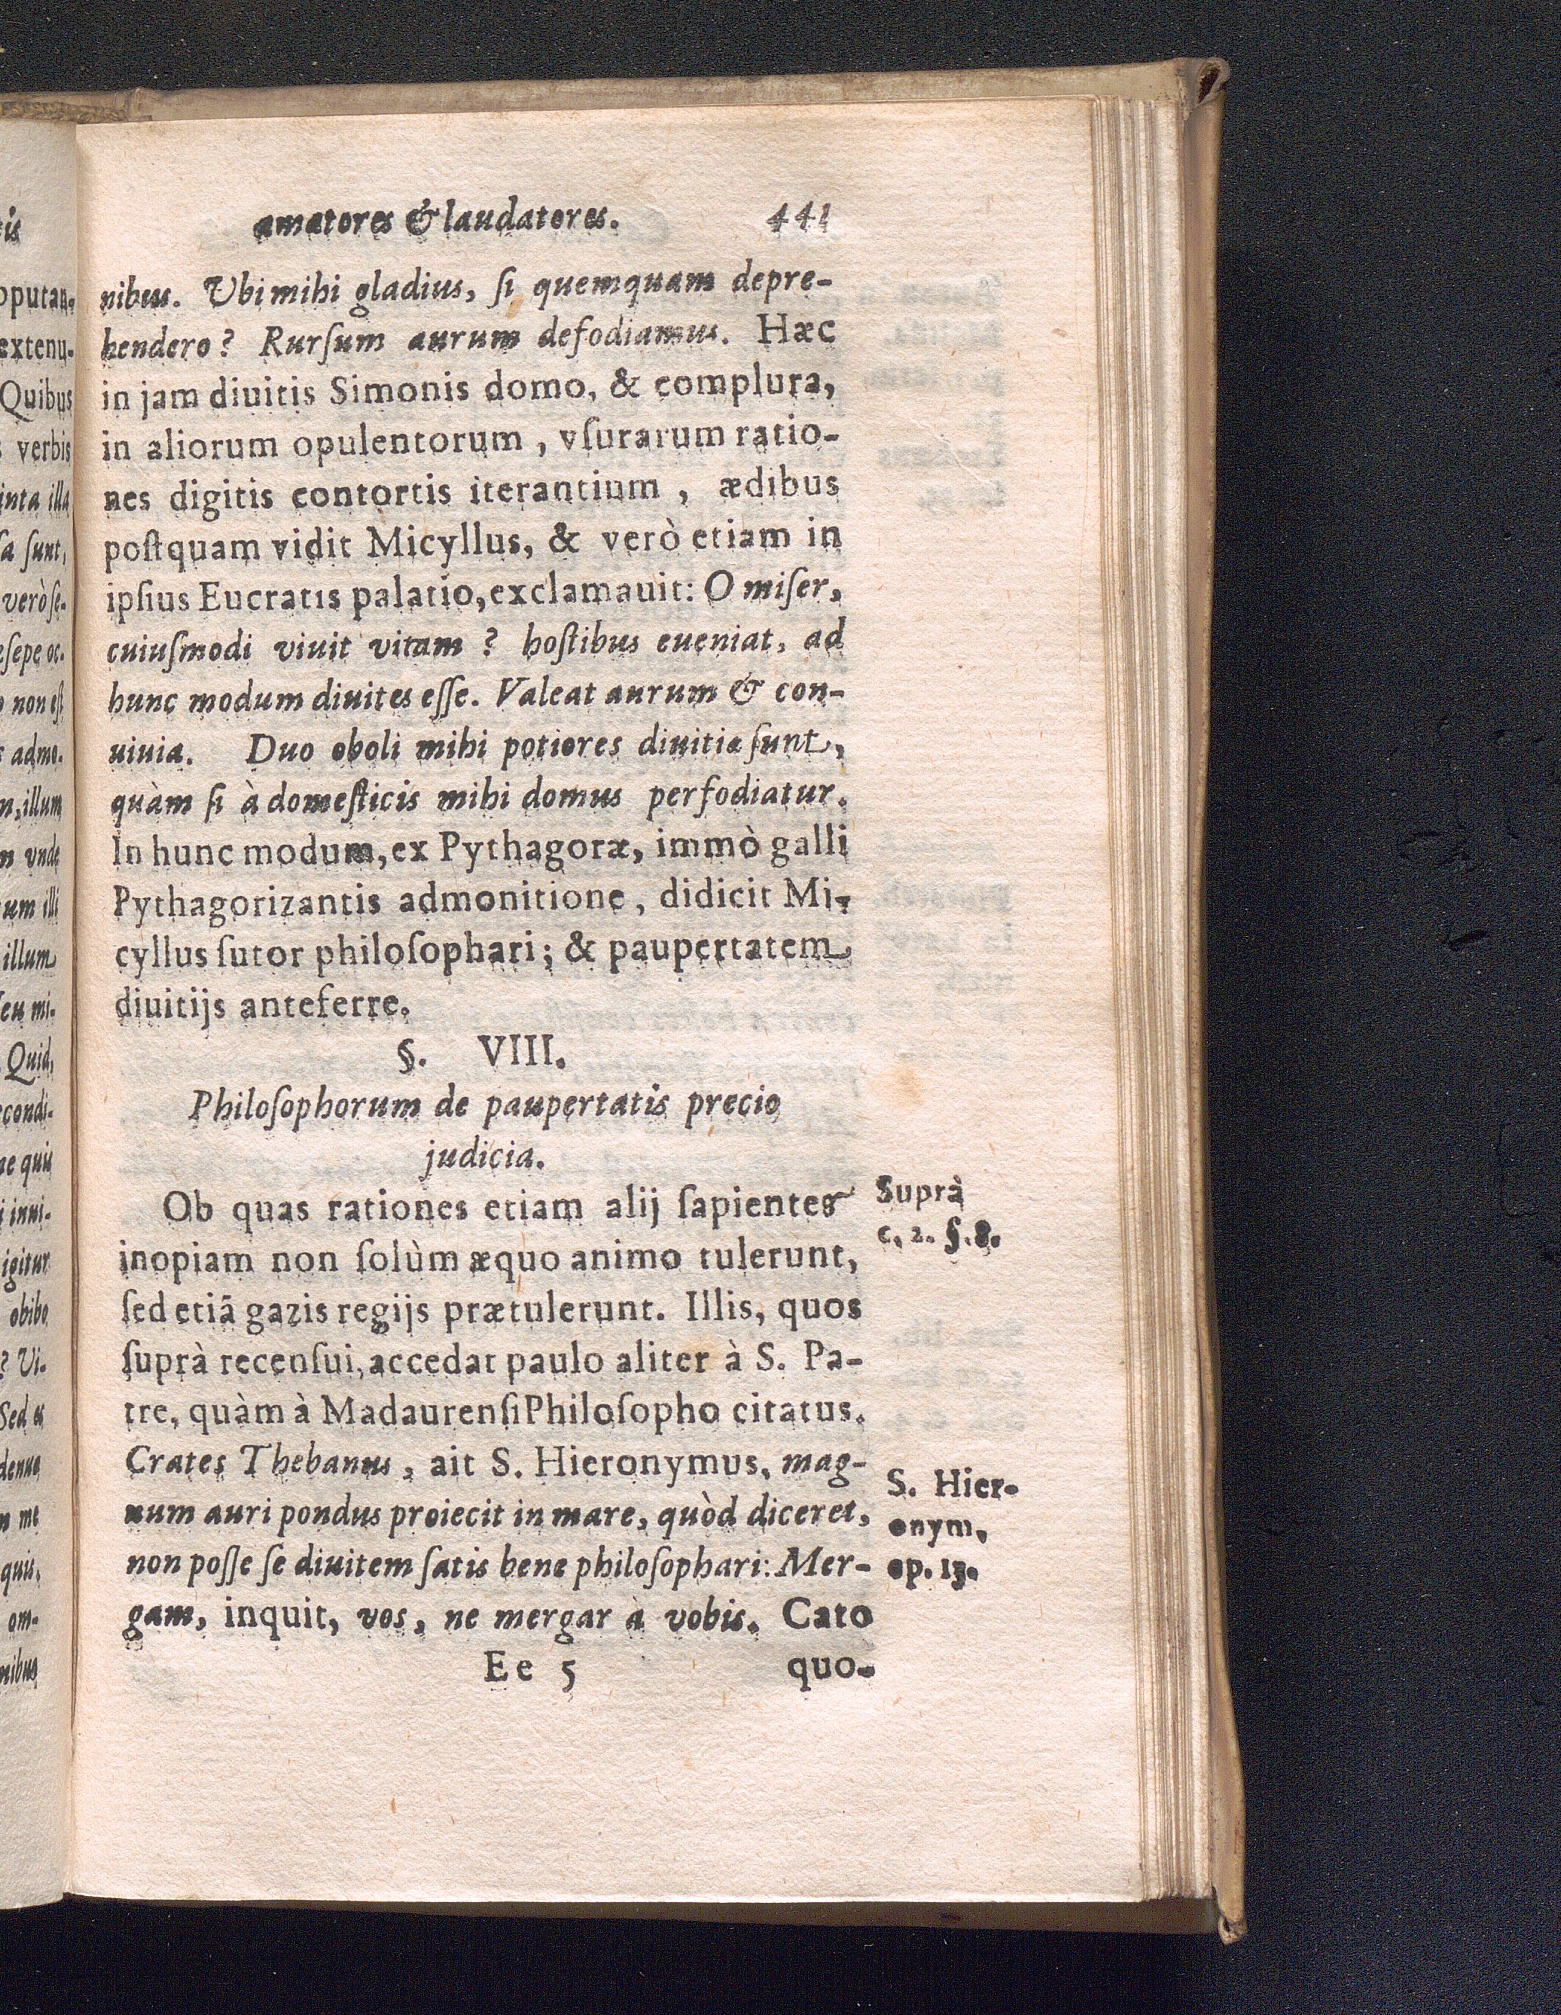 amatores & laudatores. 441
nibus. Vbi mihi gladius, ſi quemquam depre-
hendero? Rurſum aurum defodiamus. Hæc
in jam diuitis Simonis domo, & complura,
in aliorum opulentorum, vſurarum ratio-
nes digitis contortis iterantium, ædibus
poſtquam vidit Micyllus, & verò etiam in
ipſius Eucratis palatio, exclamauit: O miſer,
cuiuſmodi viuit vitam? hoſtibus eueniat, ad
hunc modum diuites eſſe. Valeat aurum & con-
uiuia. Duo oboli mihi potiores diuitiæ ſunt,
quàm ſi à domeſticis mihi domus perfodiatur.
In hunc modum, ex Pythagoræ, immò galli
Pythagorizantis admonitione, didicit Mi-
cyllus ſutor philoſophari; & paupertatem
diuitijs anteferre.
§. VIII.
Philoſophorum de paupertatis precio
judicia.
Ob quas rationes etiam alij ſapientes
inopiam non ſolùm æquo animo tulerunt,
ſed etiā gazis regijs prætulerunt. Illis, quos
ſuprà recenſui, accedat paulo aliter à S. Pa-
tre, quàm à Madaurenſi Philoſopho citatus.
Crates Thebanus, ait S. Hieronymus, mag-
num auri pondus proiecit in mare, quòd diceret,
non poſſe ſe diuitem ſatis bene philoſophari: Mer-
gam, inquit, vos, ne mergar à vobis. Cato
Ee 5 quo-
Suprà
c. 2. §. 8.
S. Hier-
onym.
ep. 13.
optutan-
extenu-
Quibus
verbis
illa
ſunt,
verò ſe-
non eſt
illum
vnde
um illi
illum
mi-
Quid,
condi-
igitur
obibo
? Vi-
Sed
denuo
me
quis,
om-
nibus